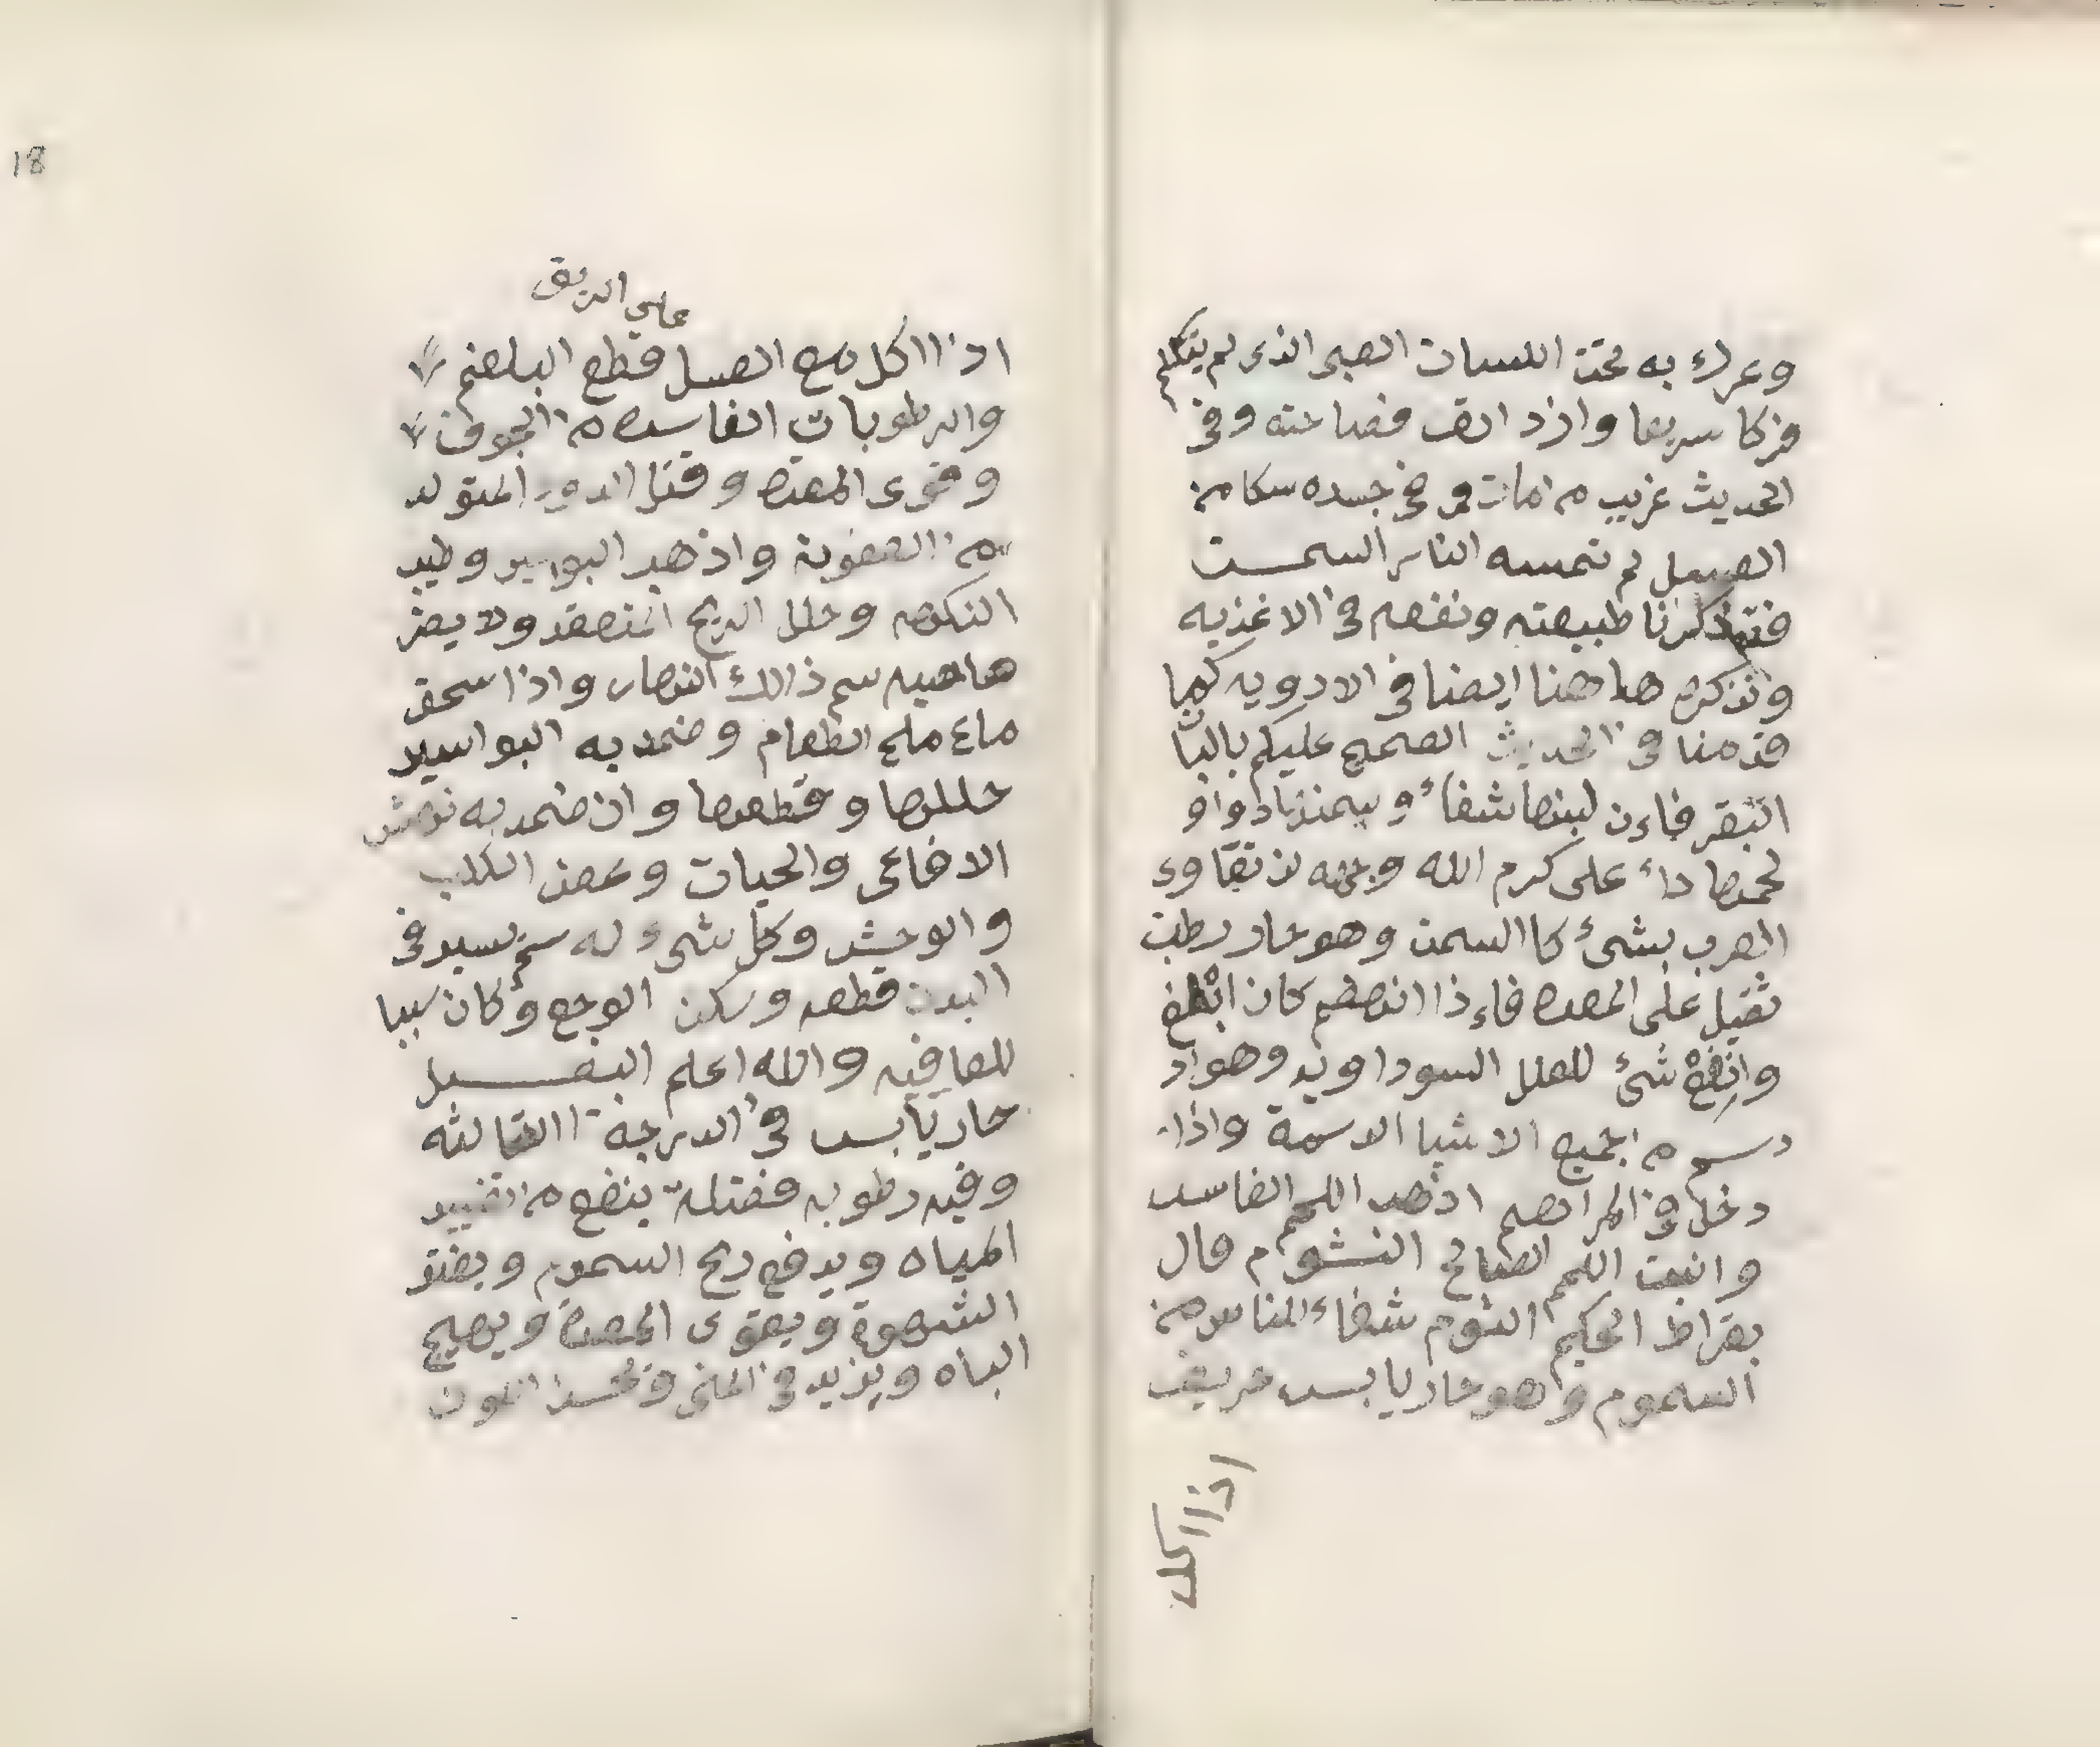 وعرك به تحت اللسان الصبي الذى لم يتكلم
فزكا سريعا وازد القـ فصاحته وفى
الحديث غريب من مات وفى جسده سكا من
العسل لم تمسه النار السمـــن
فتذكرنا طبيعته ونفعه فى الاغذيه
ونذكره هاهنا ايضا فى الادويه كما
قدمنا فى الحديث الصحيح عليكم بالبان
البقر فاءن لبنها شفاء و سمنها دواو
لحمها داء على كرم الله وجهه لن تقاوى
العرب بشىء كاالسمن وهو حار رطب
ثقيل على المعده فاءذا انهضم كان ابلغ
وانفع شىء للعلل السوداويه وهو اد
دسم من جميع الاشيا الدسمة واذا
دخل فى المراهم اذهب اللحم الفاسد
وانبت اللحم الصالح الثــوم قال
بقراط الحكيم الثوم شفاء الناس من
السموم وهو حار يابس حريف
اذا اكل
18
على الريق
اذا اكل مع العسل قطع البلغم
والرطوبات الفاسده من الجوف
وقوى المعده وقتل الدود المتولد
من العفونة واذهب البواسير وطيب
النكهه وحلل الريح المنعقد ولا يضر
هاهيه سم ذالك النهار واذا سحق
ماع ملح الطعام وضمد به البواسير
حللها وقطعها وان ضمد به نهش
الافاعى والحيات وعض الكلب
والوحش وكل شىء له سم يسير فى
البدن قطعه وسكن الوجع وكان سببا
للعافيه والله اعلم البصـــل
حار يابس فى الدرجة الثالثه
وفيه رطوبه فضلة ينفع من تغيير
المياه ويدفع ريح السموم ويفتق
الشهوة ويقوى المعدة ويهيج
الباه ويزيد فى المنى ويحسن اللون